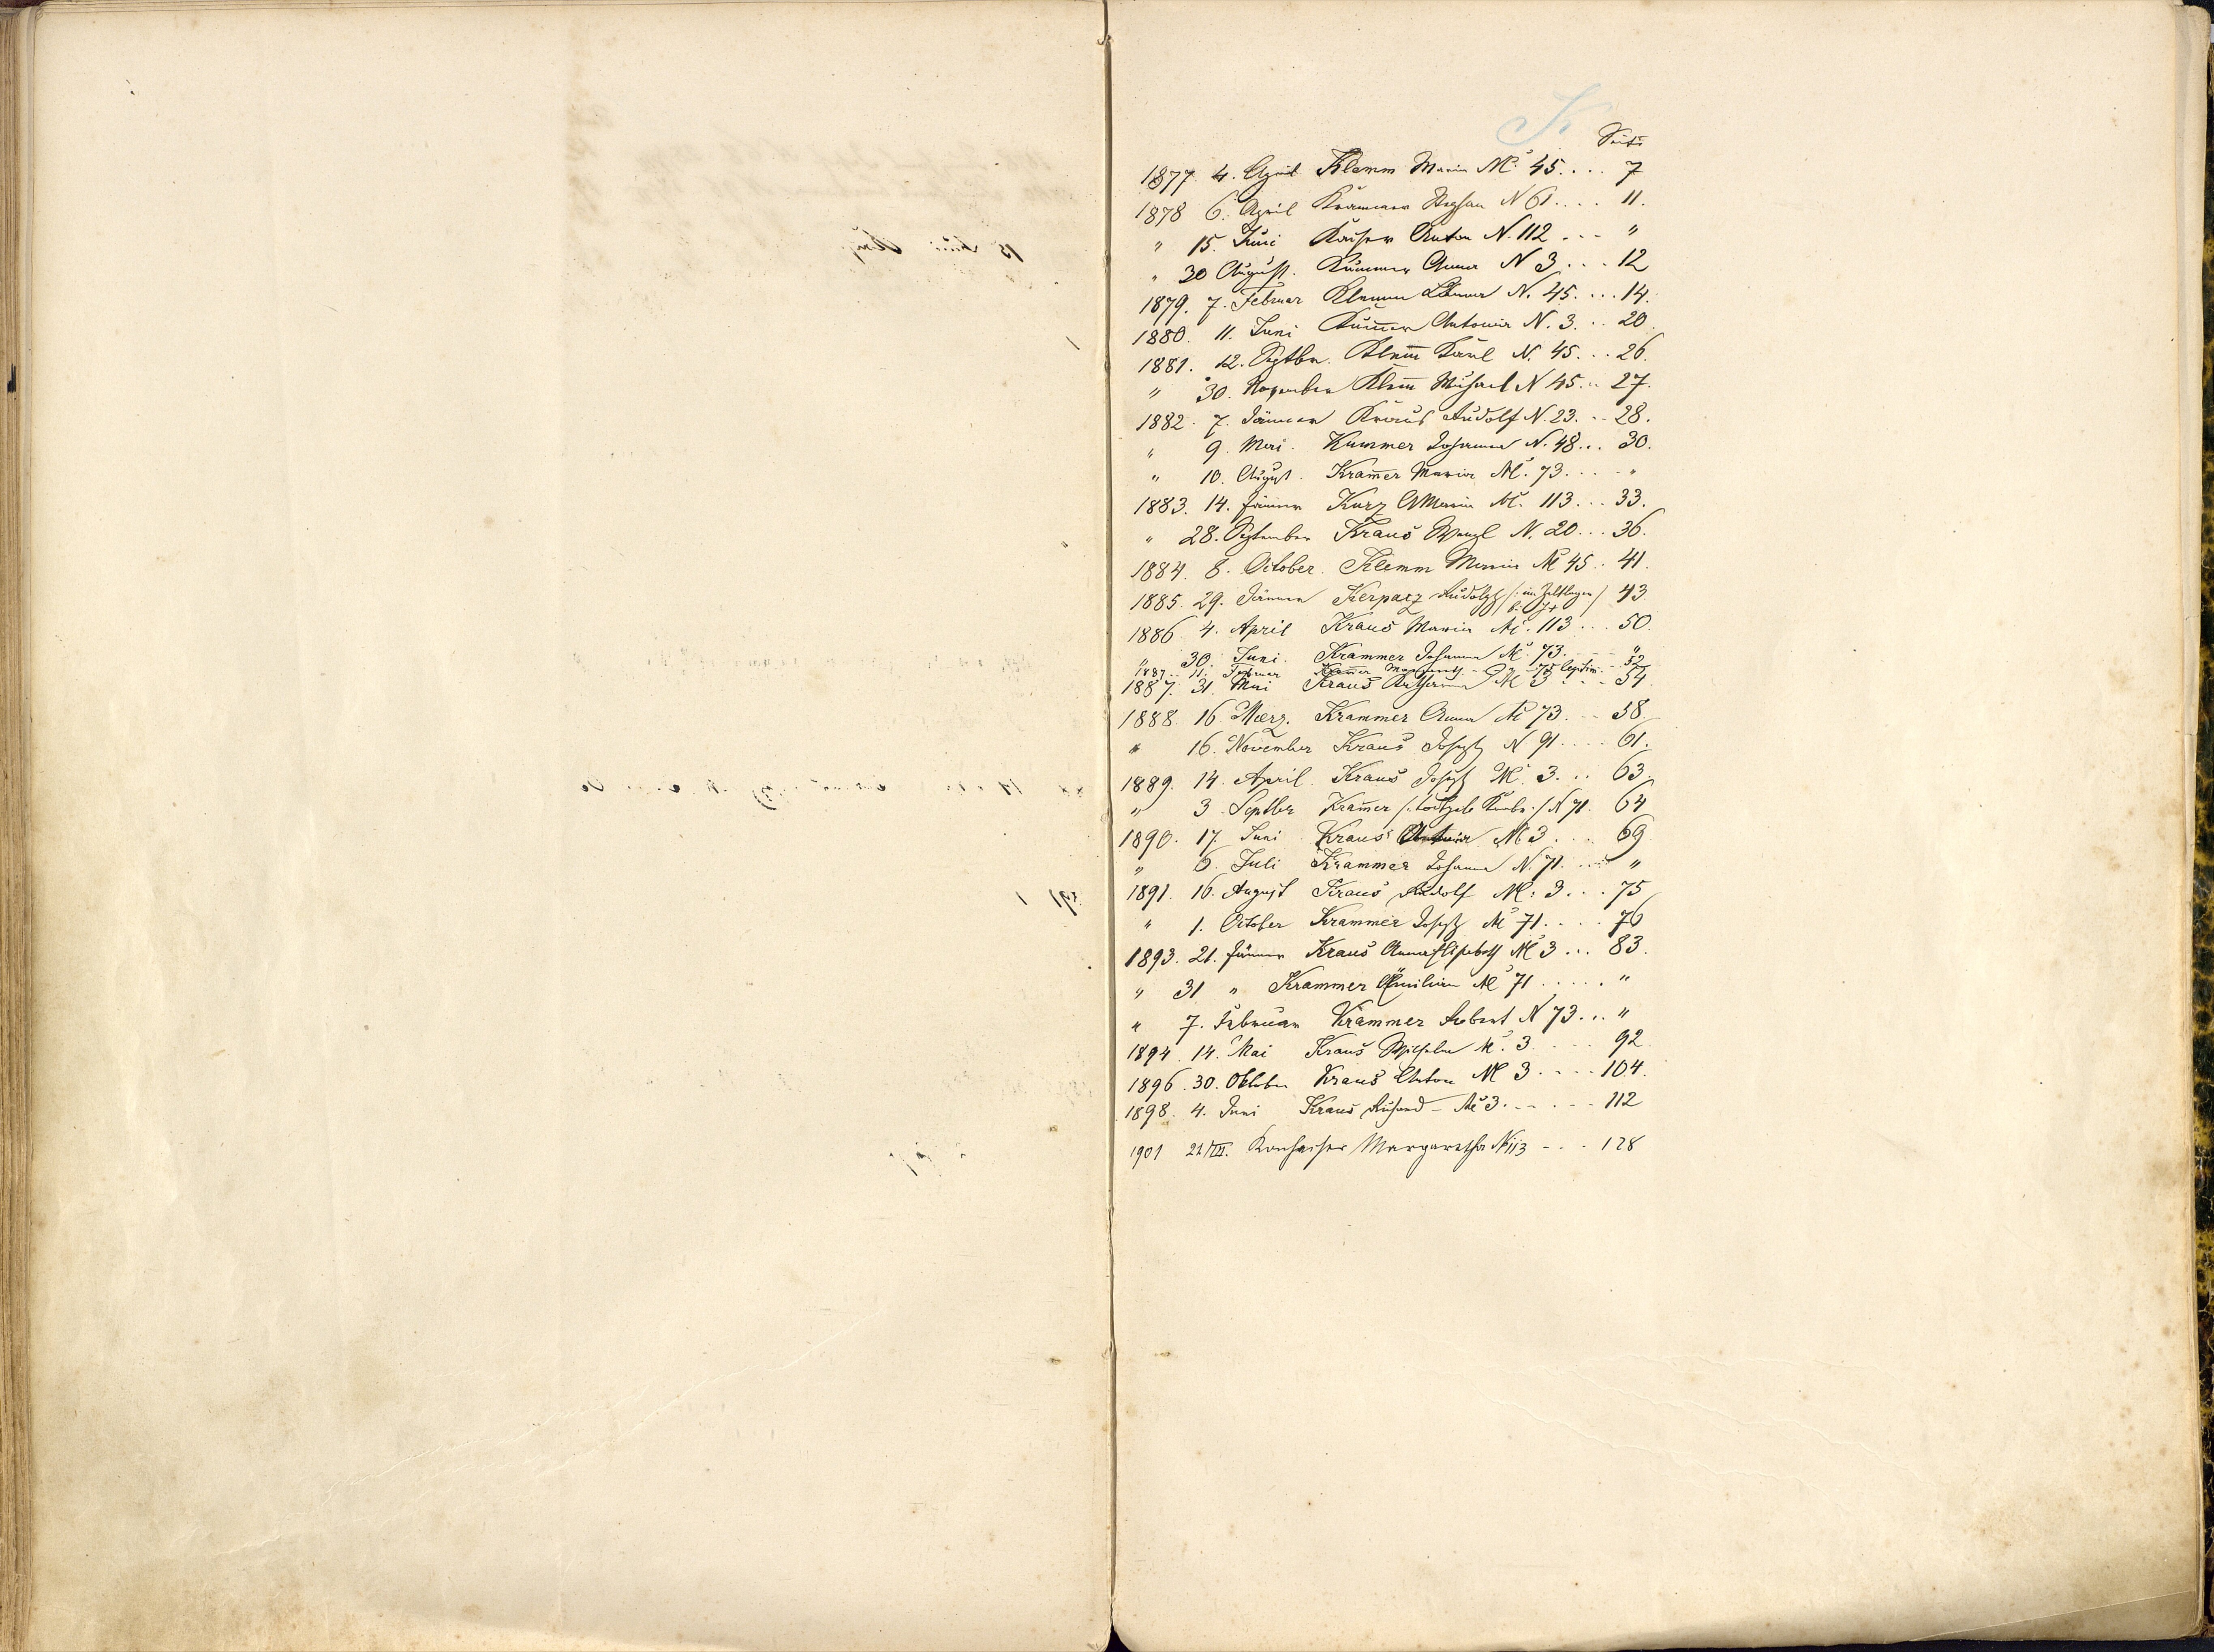 K
Seite
1877. 4. April Klemm Maria N° 45 . . . . 7
1878 6. April Krammer Stephan N 61 . . . . 11.
" 15. Juni Kaiser Anton N. 112 . . . "
" 30 August. Kummer Anna N 3 . . . 12
1879. 7. Februar Klemm N. 45. . . . 14.
1880. 11. Juni Kum̄er Antonia N. 3. . . 20.
1881. 12. Septbr. Klem̄ Karl N. 45. . . 26.
" 30. November Klem̄ Michael N 45. . 27.
1882. 7. Jänner Kraus Rudolf N. 23. . . 28.
" 9. Mai. Kummer Johanna N. 48. . . 30.
" 10. August. Kram̄er Maria N°. 73. . . . "
1883. 14. Jänner Kurz AMaria N°. 113. . . 33.
" 28. September Kraus Wenzl N. 20. . . 36.
1884. 8. October. Klemm Maria N° 45. . 41.
1885. 29. Jänner Kerpacz Rudolph /: im
b. 43
1886 4. April Kraus Maria N°. 113. . . 50.
" 30. Juni. Krammer Johanna N°. 73. . . . "
1887. 11. Februar Kram̄er 75 legitim. - 52
1887. 31. Mai Kraus Katharina N° 3 . . . 54
1888. 16. Maerz. Krammer Anna N° 73. . . 58.
" 16. November Kraus Joseph N 91 . . . . 61.
1889. 14. April. Kraus Joseph N°. 3. . . 63.
" 3. Septbr Kram̄er /: todtgeb. Knabe :/ N 71. 64
1890. 17. Juni Kraus Antonia N° 3. . . . 69.
" 6. Juli Krammer Johanna N. 71. . . . "
1891. 16. August Kraus Rudolf N°: 3. . . 75
" 1. October Krammer Joseph N° 71. . . . 76
1893. 21. Jänner Kraus Anna Elisabeth N° 3 . . . 83.
" 31 " Krammer Emilian N° 71 . . . . . "
" 7. Februar Krammer Robert N 73. . . "
1894. 14. Mai Kraus Wilhelm N°. 3 . . . . 92.
1896. 30. Oktober Kraus Anton N° 3 . . . . 104.
1898. 4. Juni Kraus Richard - N° 3. . . . . . 112
1901 21/III. Margaretha N° 113 - . . 128